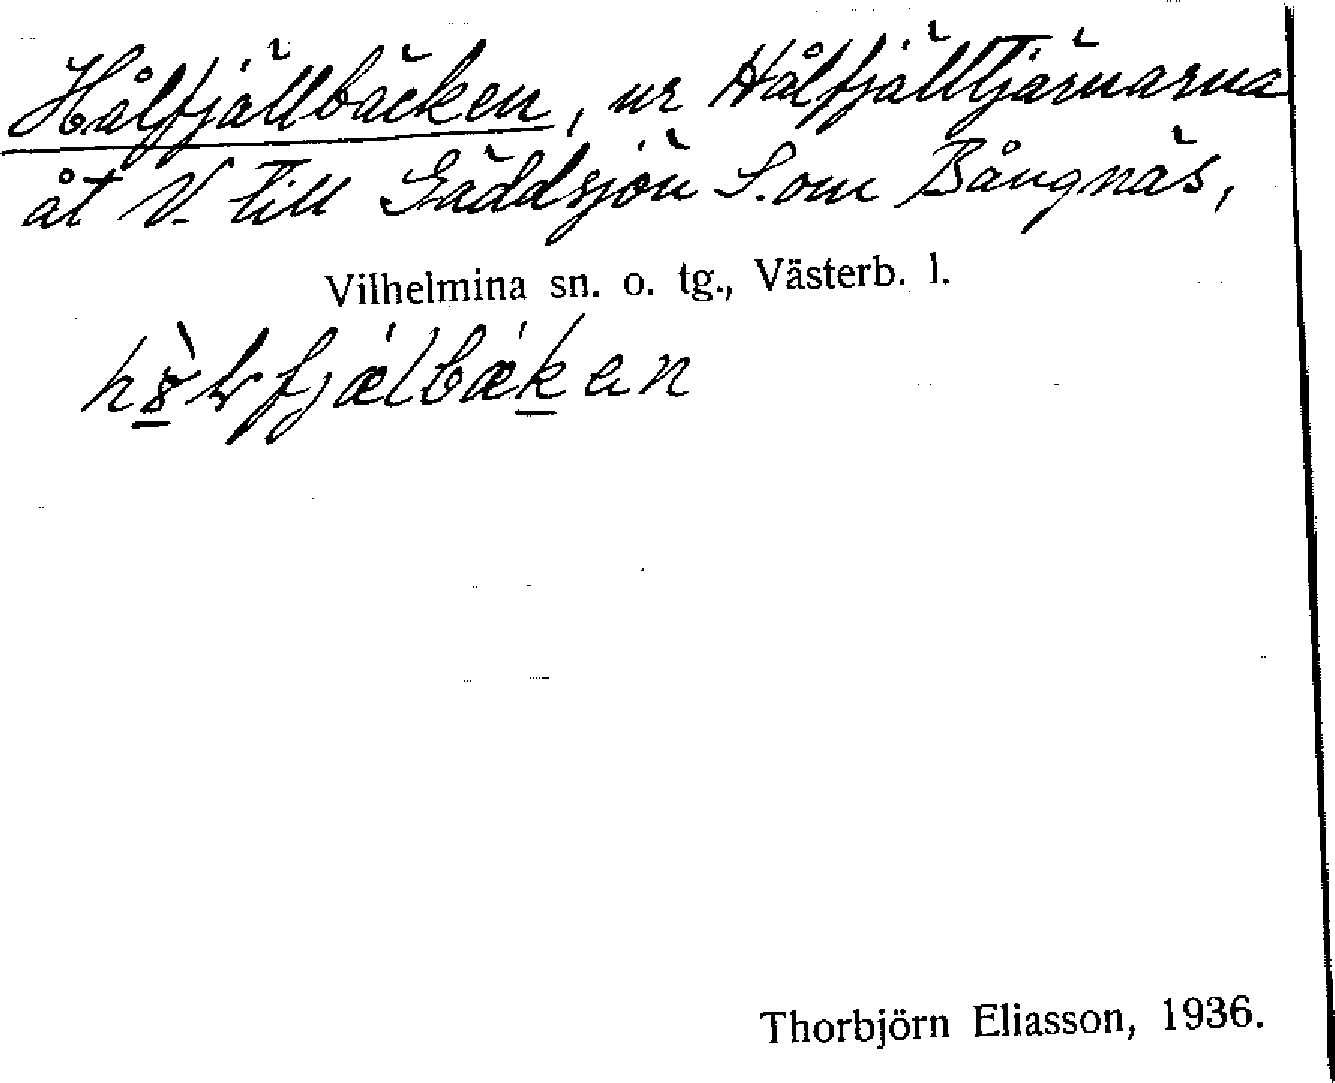 Hålfjällbäcken, ur Hålfjälltjärnarna
åt V. till Gäddsjön S. om Bångnäs,
Vilhelmina sn. o. tg., Västerb. l.
Thorbjörn Eliasson, 1936.